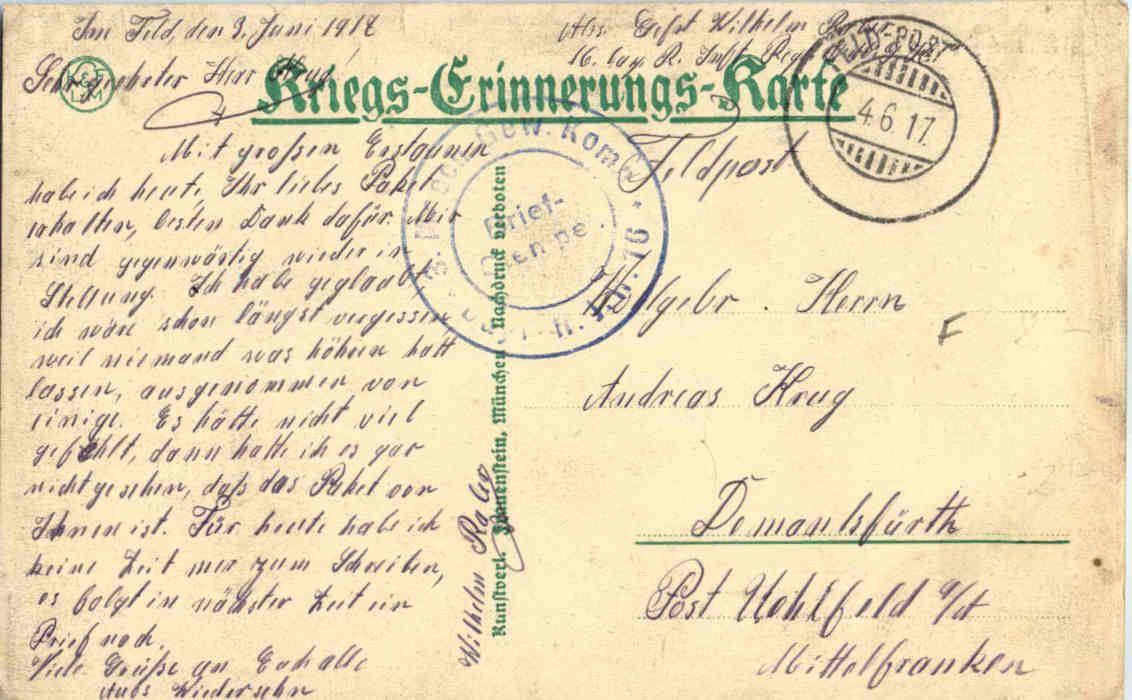 Im Feld, den 3. Juni 1917
Abs. Gefrt Wilhelm
16. bay. R. Inft. Regt.
Sehr geehrter Herr Krug!
Kriegs-Erinnerungs-Karte
FELD-POST
4.6.17.
Mit großen Erstaunen
habe ich heute, Ihr liebes Paket
erhalten, besten Dank dafür. Mir
sind gegenwärtig wieder in
Stellung. Ich habe geglaubt,
ich wäre schon längst vergessen
weil niemand was hören hatt
lassen, ausgenommen von
einige. Es hätte nicht viel
gefehlt, dann hatte ich es gar
nicht gesehen, daß das Paket von
Ihnen ist. Für heute habe ich
keine Zeit mer zum Schreiben,
es folgt in nächster Zeit ein
Brief noch.
Viele Grüße an Euch alle
Aufs Wiedersehn
Wilhelm
Kunstverl. München Nachdruck verboten
Gew. Komp.
Brief-
Stempel
R. 16
Feldpost
Wohlgebr. Herrn
Andreas Krug
Demantsfürth
Post Uehlfeld a/A
Mittelfranken